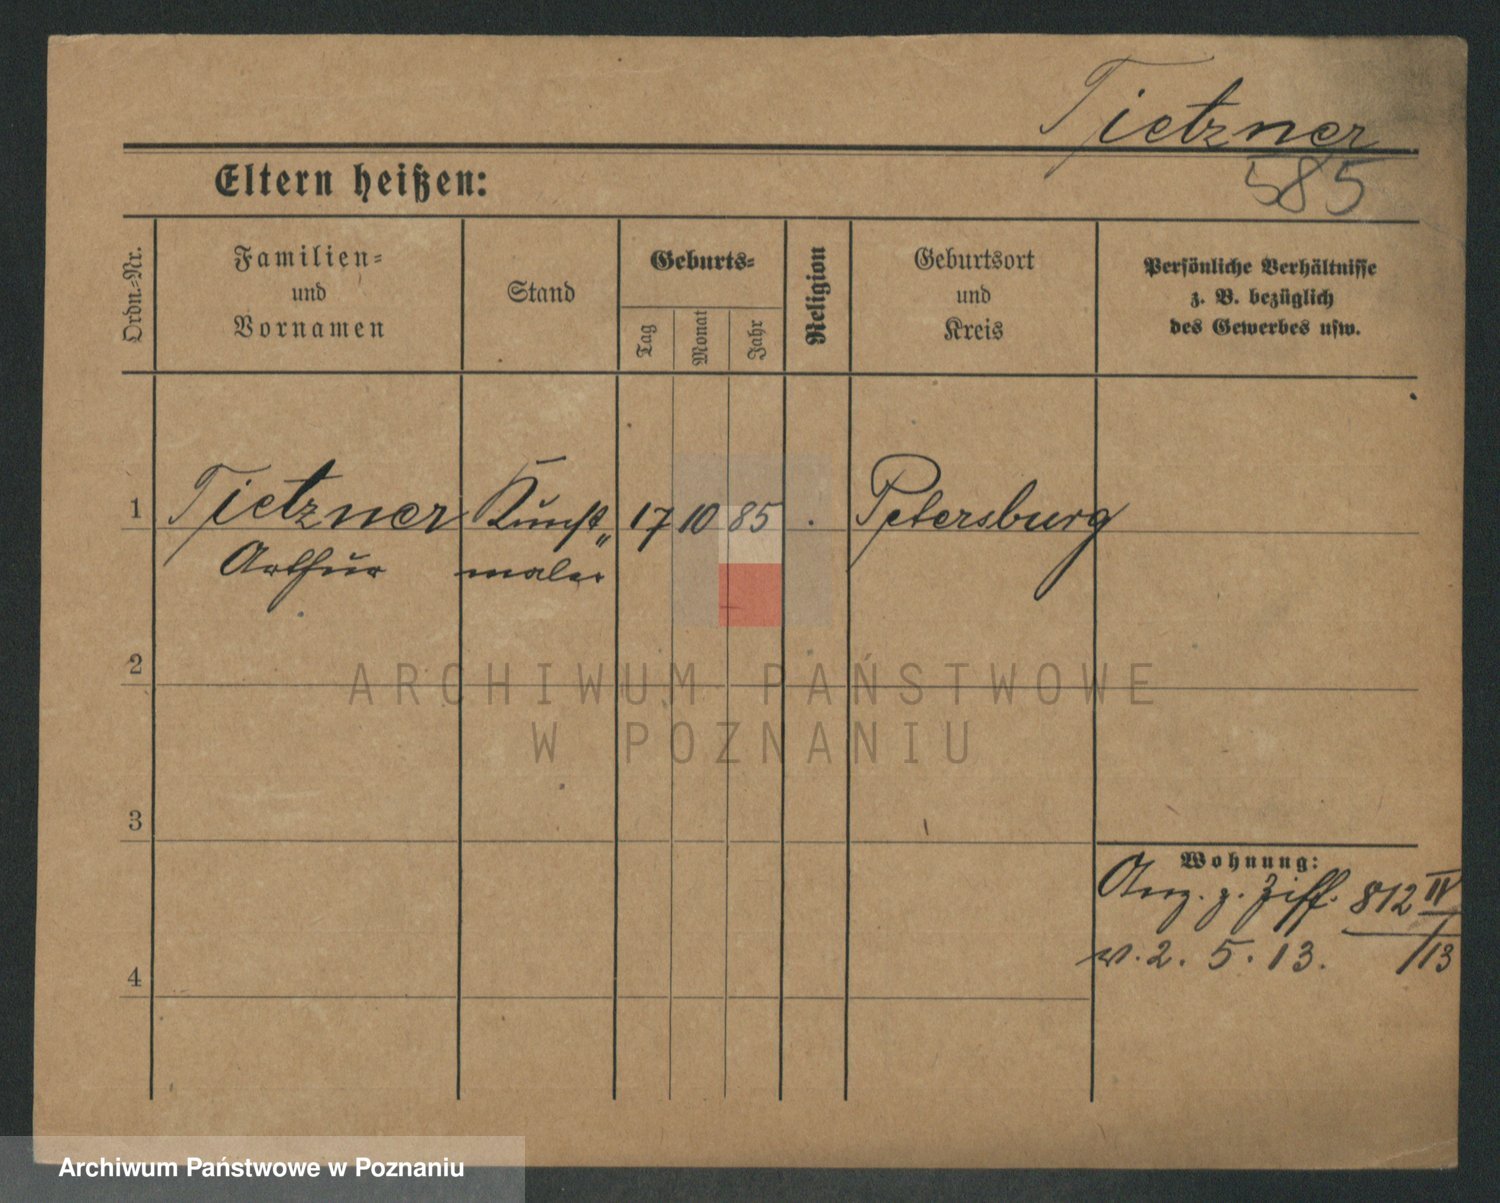 Tietzner
585
Eltern heißen:
Ordn.-Nr.
Familien- und Vornamen
Stand
Geburts-
Tag
Monat
Jahr
Religion
Geburtsort und Kreis
Persönliche Verhältnisse
z. B. bezüglich
des Gewerbes usw.
1 Tietzner Kunst- 17 10 85 . Petersburg
Arthur maler
2
ARCHIWUM PAŃSTWOWE
W POZNANIU
3
Wohnung:
Anz. z. Ziff. 812 IV
v. 2. 5. 13. /13
4
Archiwum Państwowe w Poznaniu